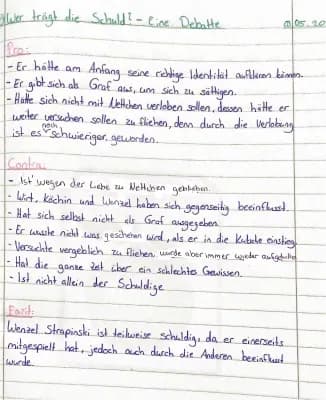 Wer trägt die Schuld? - Eine Debatte 05.20
Pro:
- Er hätte am Anfang seine richtige Identität aufklären können.
- Er gibt sich als Graf aus, um sich zu sättigen.
- Hätte sich nicht mit Nettchen verloben sollen, dessen hätte er
weiter versuchen sollen zu fliehen, denn durch die Verlobung
ist es noch schwieriger geworden.
Contra:
- Ist wegen der Liebe zu Nettchen geblieben.
- Wirt, Köchin und Wenzel haben sich gegenseitig beeinflusst.
- Hat sich selbst nicht als Graf ausgegeben.
- Er wusste nicht was geschehen wird, als er in die Kutsche einstieg.
- Versuchte vergeblich zu fliehen, wurde aber immer wieder aufgehalten.
- Hat die ganze Zeit über ein schlechtes Gewissen.
- Ist nicht allein der Schuldige
Fazit:
Wenzel Strapinski ist teilweise schuldig, da er einerseits
mitgespielt hat, jedoch auch durch die Anderen beeinflusst
wurde.